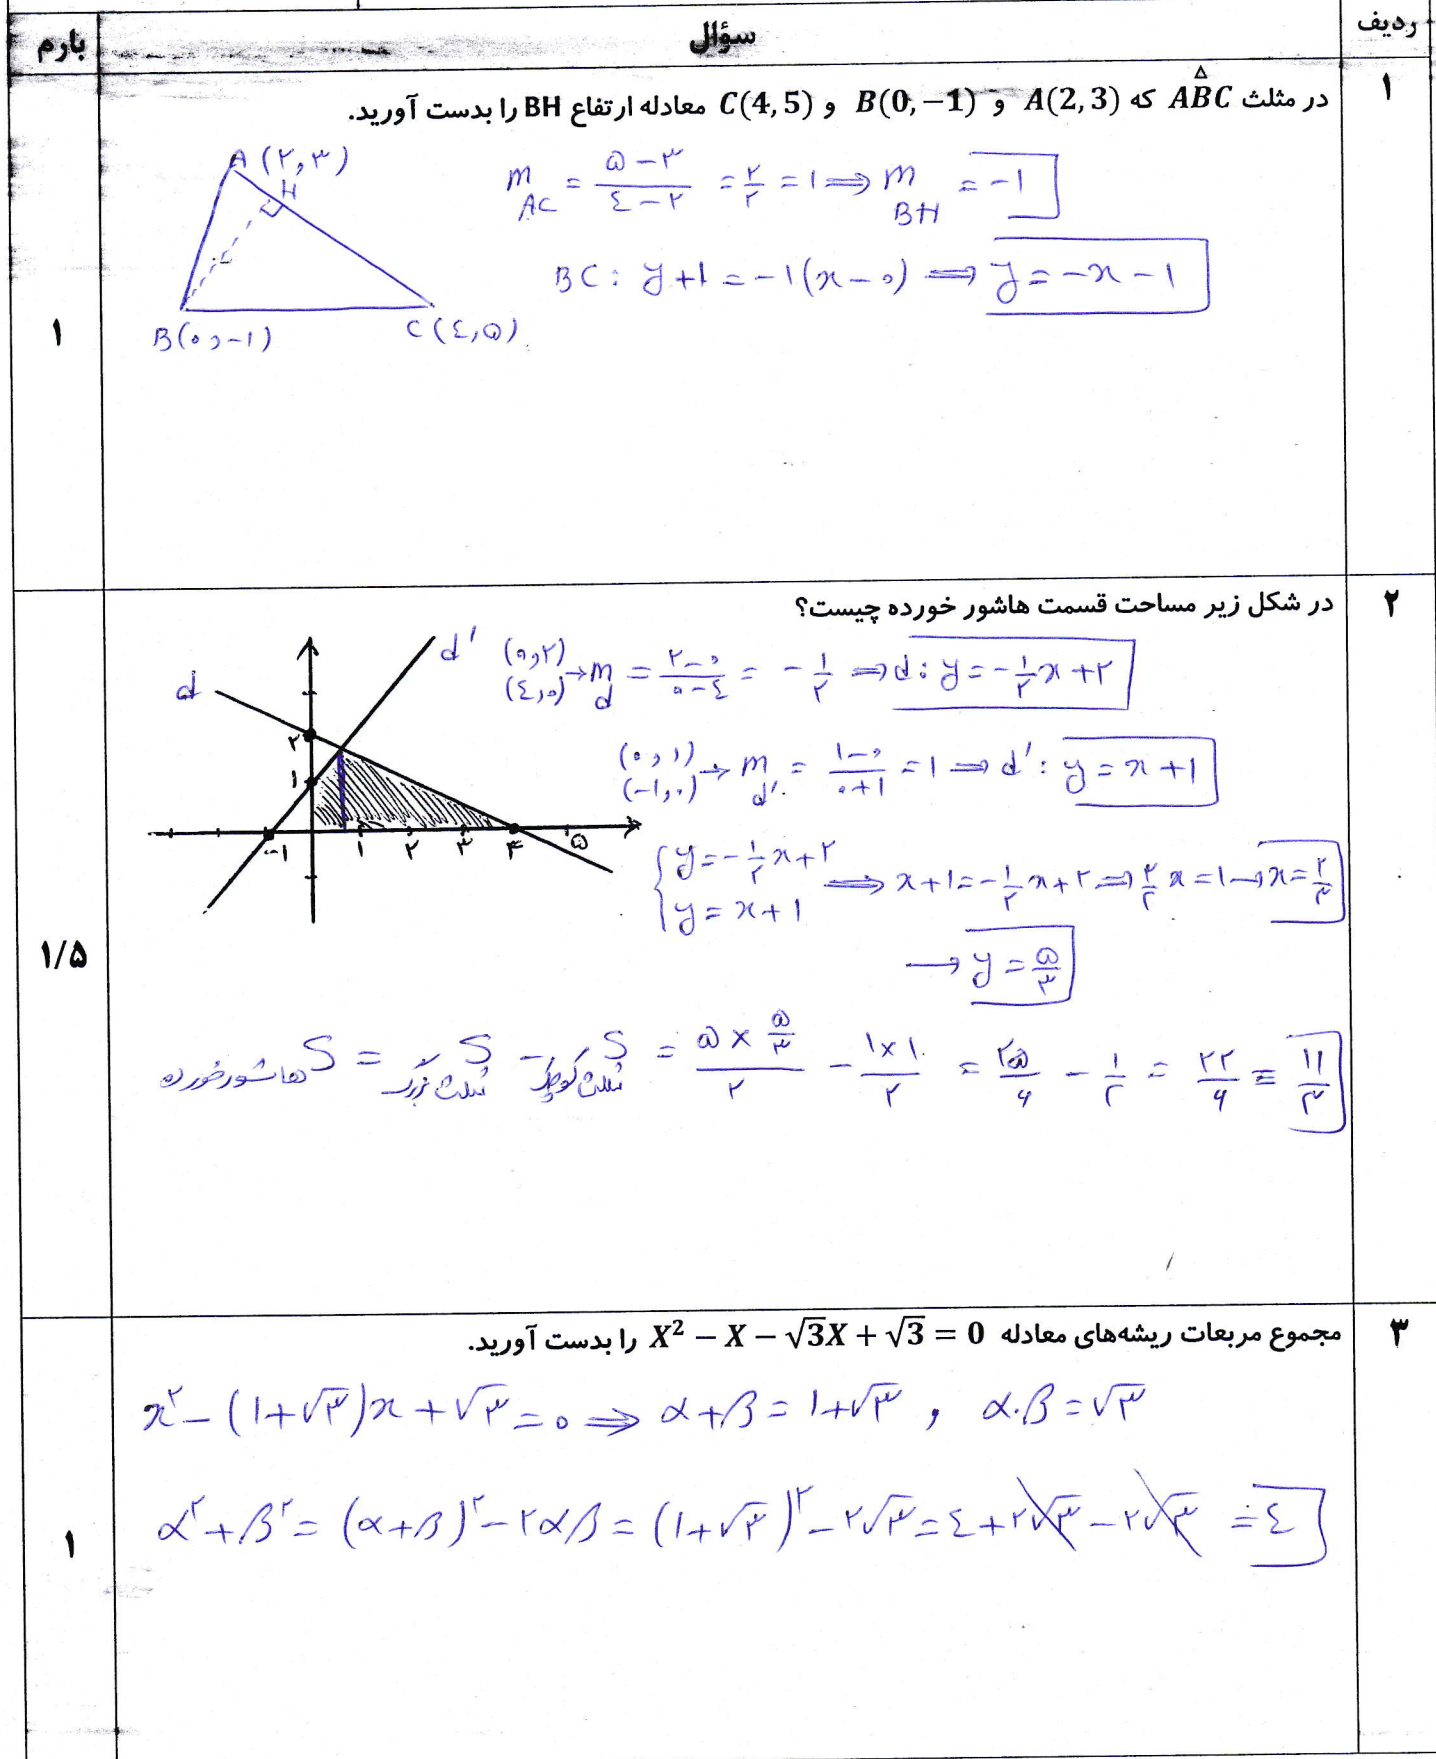 ردیف سؤال بارم
۱ در مثلث ABC△ که A(2,3) و B(0,−1) و C(4,5) معادله ارتفاع BH را بدست آورید. ۱
A(۲,۳)
H
B(۰,−۱)
C(٤,۵)
m AC = (۵−۳)/(٤−۲) = ۲/۲ = ۱ ⟹ m BH = −۱
BC: y+۱ = −۱(x−۰) ⟹ y = −x − ۱
۲ در شکل زیر مساحت قسمت هاشور خورده چیست؟ ۱/۵
d d′
۲
۱
−۱ ۱ ۲ ۳ ۴ ۵
(۰,۲) (٤,۰) → m d = (۲−۰)/(۰−٤) = −۱/۲ ⟹ d: y = −۱/۲ x + ۲
(۰,۱) (−۱,۰) → m d′ = (۱−۰)/(۰+۱) = ۱ ⟹ d′: y = x + ۱
{ y = −۱/۲ x + ۲
y = x + ۱ ⟹ x + ۱ = −۱/۲ x + ۲ ⟹ ۳/۲ x = ۱ → x = ۲/۳
→ y = ۵/۳
S هاشورخورده = S مثلث بزرگ − S مثلث کوچک = (۵ × ۵/۳)/۲ − (۱×۱)/۲ = ۲۵/۶ − ۱/۲ = ۲۲/۶ = ۱۱/۳
۳ مجموع مربعات ریشه‌های معادله X² − X − √3X + √3 = 0 را بدست آورید. ۱
x² − (۱+√۳)x + √۳ = ۰ ⟹ α+β = ۱+√۳ , α.β = √۳
α² + β² = (α+β)² − ۲αβ = (۱+√۳)² − ۲√۳ = ٤ + ۲√۳ − ۲√۳ = ٤